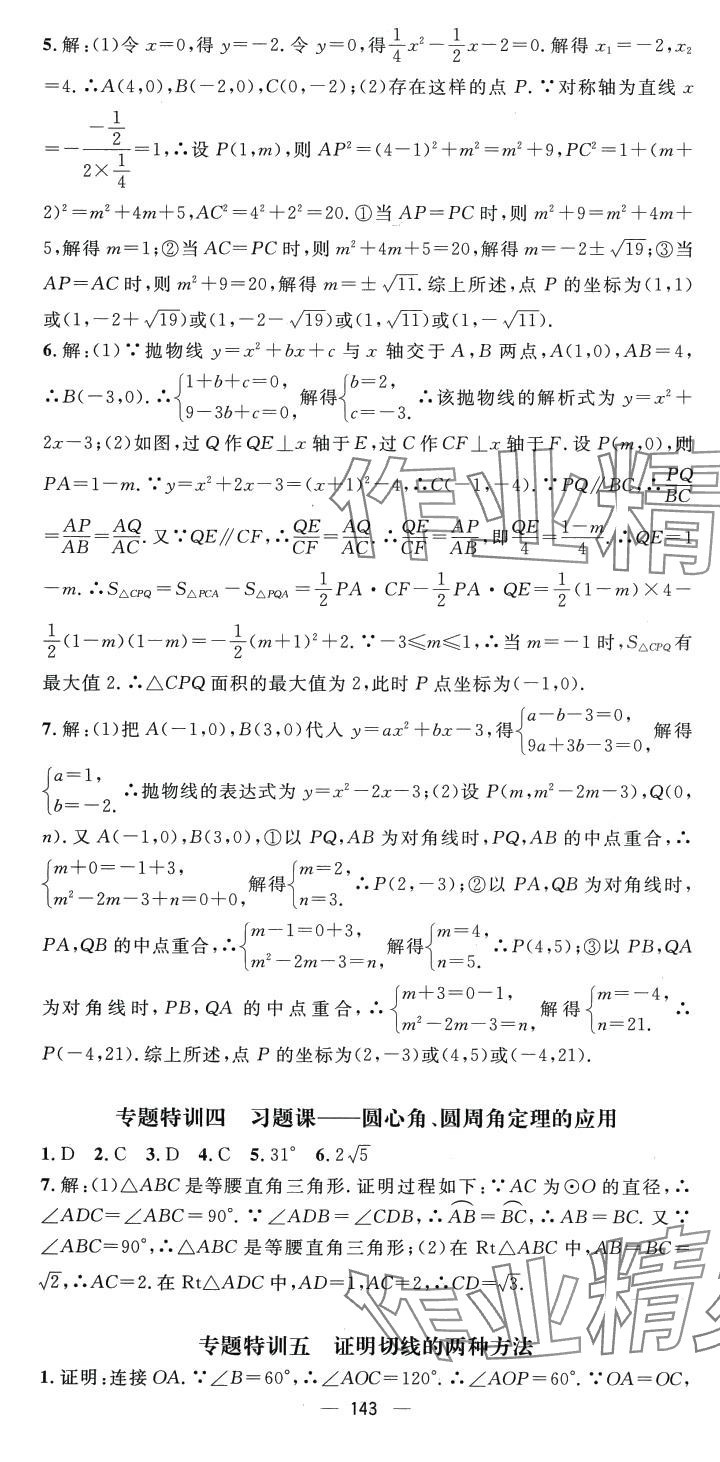 5.解:(1)令 x=0,得 y=-2.令 y=0,得\frac{1}{4}x²-\frac{1}{2}x-2=0.解得 x₁=-2,x₂
=4.∴A(4,0),B(-2,0),C(0,-2);(2)存在这样的点 P.∵对称轴为直线 x
=-\frac{-\frac{1}{2}}{2×\frac{1}{4}}=1,∴设 P(1,m),则 AP²=(4-1)²+m²=m²+9,PC²=1+(m+
2)²=m²+4m+5,AC²=4²+2²=20.①当 AP=PC 时,则 m²+9=m²+4m+
5,解得 m=1;②当 AC=PC 时,则 m²+4m+5=20,解得 m=-2±√19;③当
AP=AC 时,则 m²+9=20,解得 m=±√11.综上所述,点 P 的坐标为(1,1)
或(1,-2+√19)或(1,-2-√19)或(1,√11)或(1,-√11).
6.解:(1)∵抛物线 y=x²+bx+c 与 x 轴交于 A,B 两点,A(1,0),AB=4,
∴B(-3,0).∴{1+b+c=0, 9-3b+c=0,解得{b=2, c=-3.∴该抛物线的解析式为 y=x²+
2x-3;(2)如图,过 Q 作 QE⊥x 轴于 E,过 C 作 CF⊥x 轴于 F.设 P(m,0),则
PA=1-m.∵y=x²+2x-3=(x+1)²-4,∴C(-1,-4).∵PQ∥BC,∴\frac{PQ}{BC}
=\frac{AP}{AB}=\frac{AQ}{AC}.又∵QE∥CF,∴\frac{QE}{CF}=\frac{AQ}{AC}.∴\frac{QE}{CF}=\frac{AP}{AB},即\frac{QE}{4}=\frac{1-m}{4}.∴QE=1
-m.∴S△CPQ=S△PCA-S△PQA=\frac{1}{2}PA·CF-\frac{1}{2}PA·QE=\frac{1}{2}(1-m)×4-
\frac{1}{2}(1-m)(1-m)=-\frac{1}{2}(m+1)²+2.∵-3≤m≤1,∴当 m=-1 时,S△CPQ有
最大值 2.∴△CPQ 面积的最大值为 2,此时 P 点坐标为(-1,0).
7.解:(1)把 A(-1,0),B(3,0)代入 y=ax²+bx-3,得{a-b-3=0, 9a+3b-3=0,解得
{a=1, b=-2.∴抛物线的表达式为 y=x²-2x-3;(2)设 P(m,m²-2m-3),Q(0,
n).又 A(-1,0),B(3,0),①以 PQ,AB 为对角线时,PQ,AB 的中点重合,∴
{m+0=-1+3, m²-2m-3+n=0+0,解得{m=2, n=3.∴P(2,-3);②以 PA,QB 为对角线时,
PA,QB 的中点重合,∴{m-1=0+3, m²-2m-3=n,解得{m=4, n=5.∴P(4,5);③以 PB,QA
为对角线时,PB,QA 的中点重合,∴{m+3=0-1, m²-2m-3=n,解得{m=-4, n=21.∴
P(-4,21).综上所述,点 P 的坐标为(2,-3)或(4,5)或(-4,21).
专题特训四 习题课——圆心角、圆周角定理的应用
1.D 2.C 3.D 4.C 5.31° 6.2√5
7.解:(1)△ABC 是等腰直角三角形.证明过程如下:∵AC 为⊙O 的直径,∴
∠ADC=∠ABC=90°.∵∠ADB=∠CDB,∴\overset{⌢}{AB}=\overset{⌢}{BC},∴AB=BC.又∵
∠ABC=90°,∴△ABC 是等腰直角三角形;(2)在 Rt△ABC 中,AB=BC=
√2,∴AC=2.在 Rt△ADC 中,AD=1,AC=2,∴CD=√3.
专题特训五 证明切线的两种方法
1.证明:连接 OA.∵∠B=60°,∴∠AOC=120°.∴∠AOP=60°.∵OA=OC,
— 143 —
作业精
作业精